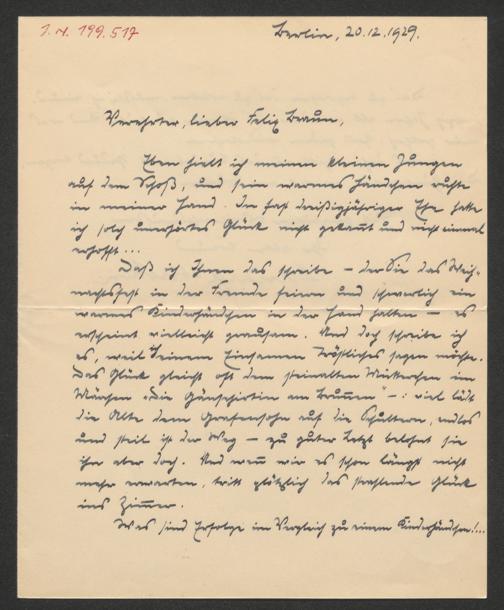 J. N. 199.517
Berlin, 20.12.1929.
Verehrter, lieber Felix Braun,
Eben hielt ich meinen kleinen Jungen
auf dem Schoß, und sein warmes Händchen ruhte
in meiner Hand. In fast dreißigjähriger Ehe hatte
ich solch unerhörtes Glück nicht gekannt und nicht einmal
erhofft...
Daß ich Ihnen das schreibe – der Sie das Weih-
nachtsfest in der Fremde feiern und schwerlich ein
warmes Kinderhändchen in der Hand halten – es
erscheint vielleicht grausam. Und doch schreibe ich
es, weil einem Einsamen Tröstliches sagen möchte.
Das Glück gleicht oft dem steinalten Mütterchen im
Märchen „Die Gänsehirtin am Brunnen" –: viel lädt
die Alte dem Grafensohn auf die Schultern, endlos
und steil ist der Weg – zu guter Letzt belohnt sie
ihn aber doch. Und wenn wir es schon längst nicht
mehr erwarten, tritt plötzlich das strahlende Glück
ins Zimmer.
Was sind Erfolge im Vergleich zu einem Kinderhändchen!...